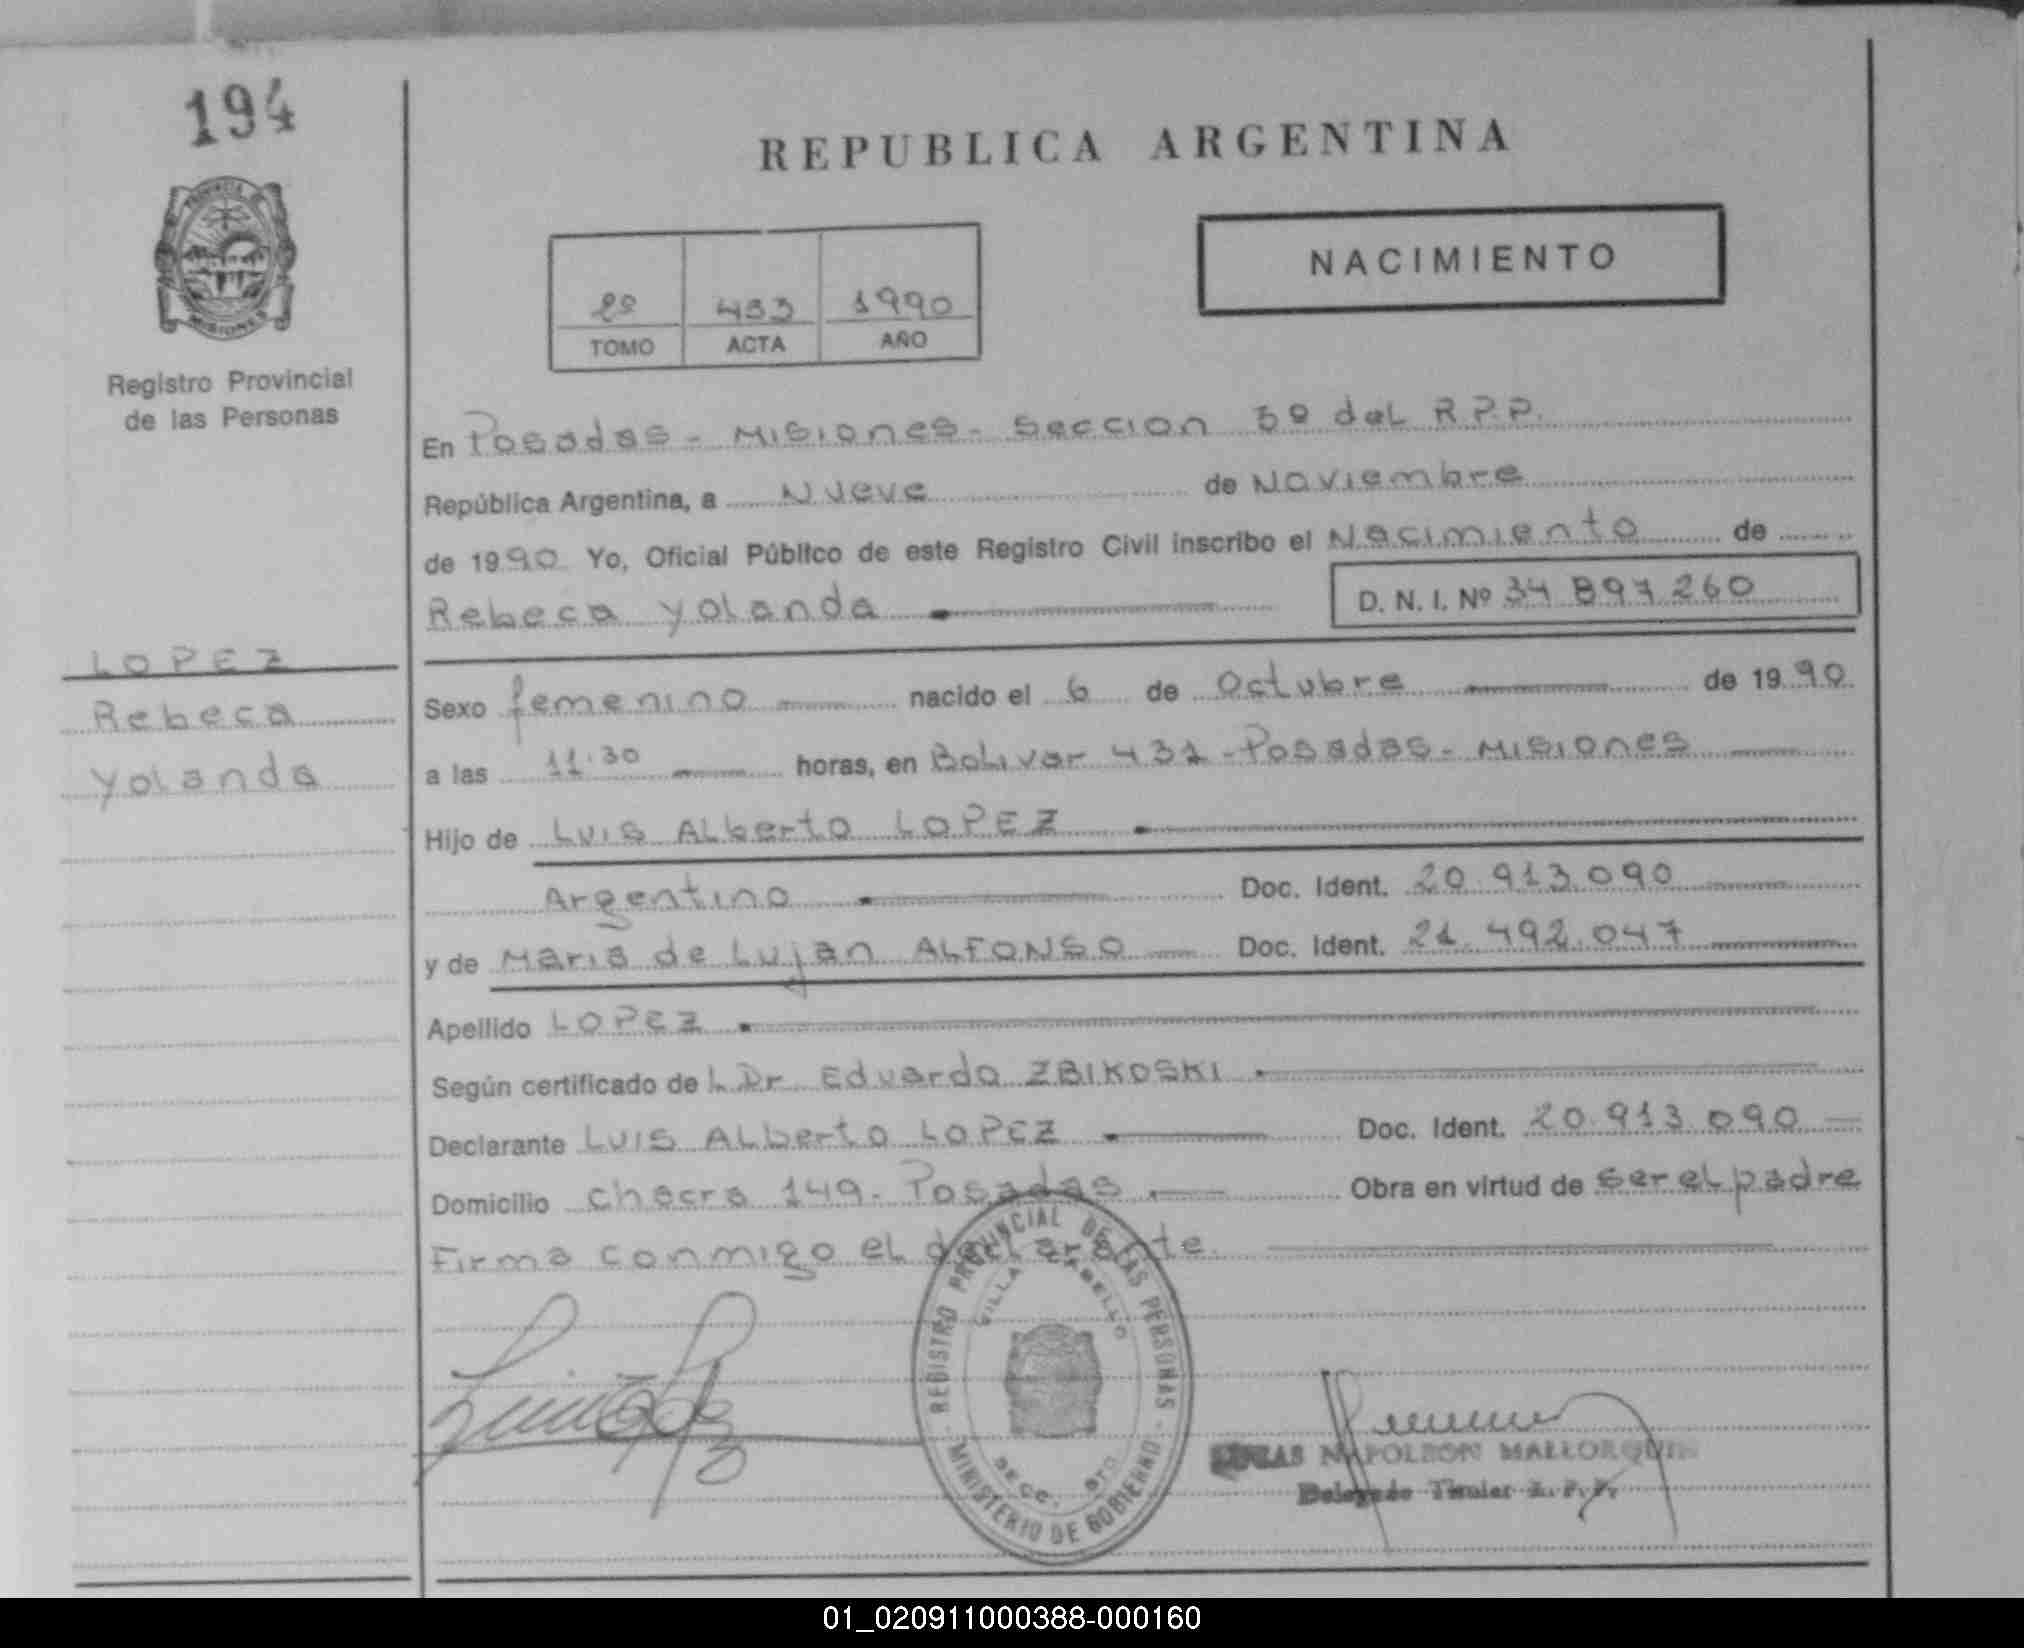 194
PROVINCIA DE
MISIONES
Registro Provincial
de las Personas
LOPEZ
Rebeca
Yolanda
REPUBLICA ARGENTINA
NACIMIENTO
2º 433 1990
TOMO ACTA AÑO
En Posadas - Misiones - Seccion 3º del R.P.P.
República Argentina, a Nueve de Noviembre
de 1990 Yo, Oficial Público de este Registro Civil inscribo el Nacimiento de
Rebeca Yolanda D. N. I. Nº 34 897 260
Sexo femenino nacido el 6 de Octubre de 1990
a las 11.30 horas, en Bolivar 431 - Posadas - Misiones
Hijo de Luis Alberto LOPEZ
Argentino Doc. Ident. 20.913.090
y de Maria de Lujan ALFONSO Doc. Ident. 21.492.047
Apellido LOPEZ
Según certificado de L Dr Eduardo ZBIKOSKI
Declarante Luis Alberto LOPEZ Doc. Ident. 20.913.090
Domicilio chacra 149 - Posadas Obra en virtud de ser el padre
Firma conmigo el declarante.
REGISTRO PROVINCIAL DE LAS PERSONAS
VILLA
SECC. 3ra.
MINISTERIO DE GOBIERNO
NAPOLEON MALLORQUIN
Delegado Titular R. P. P.
01_020911000388-000160